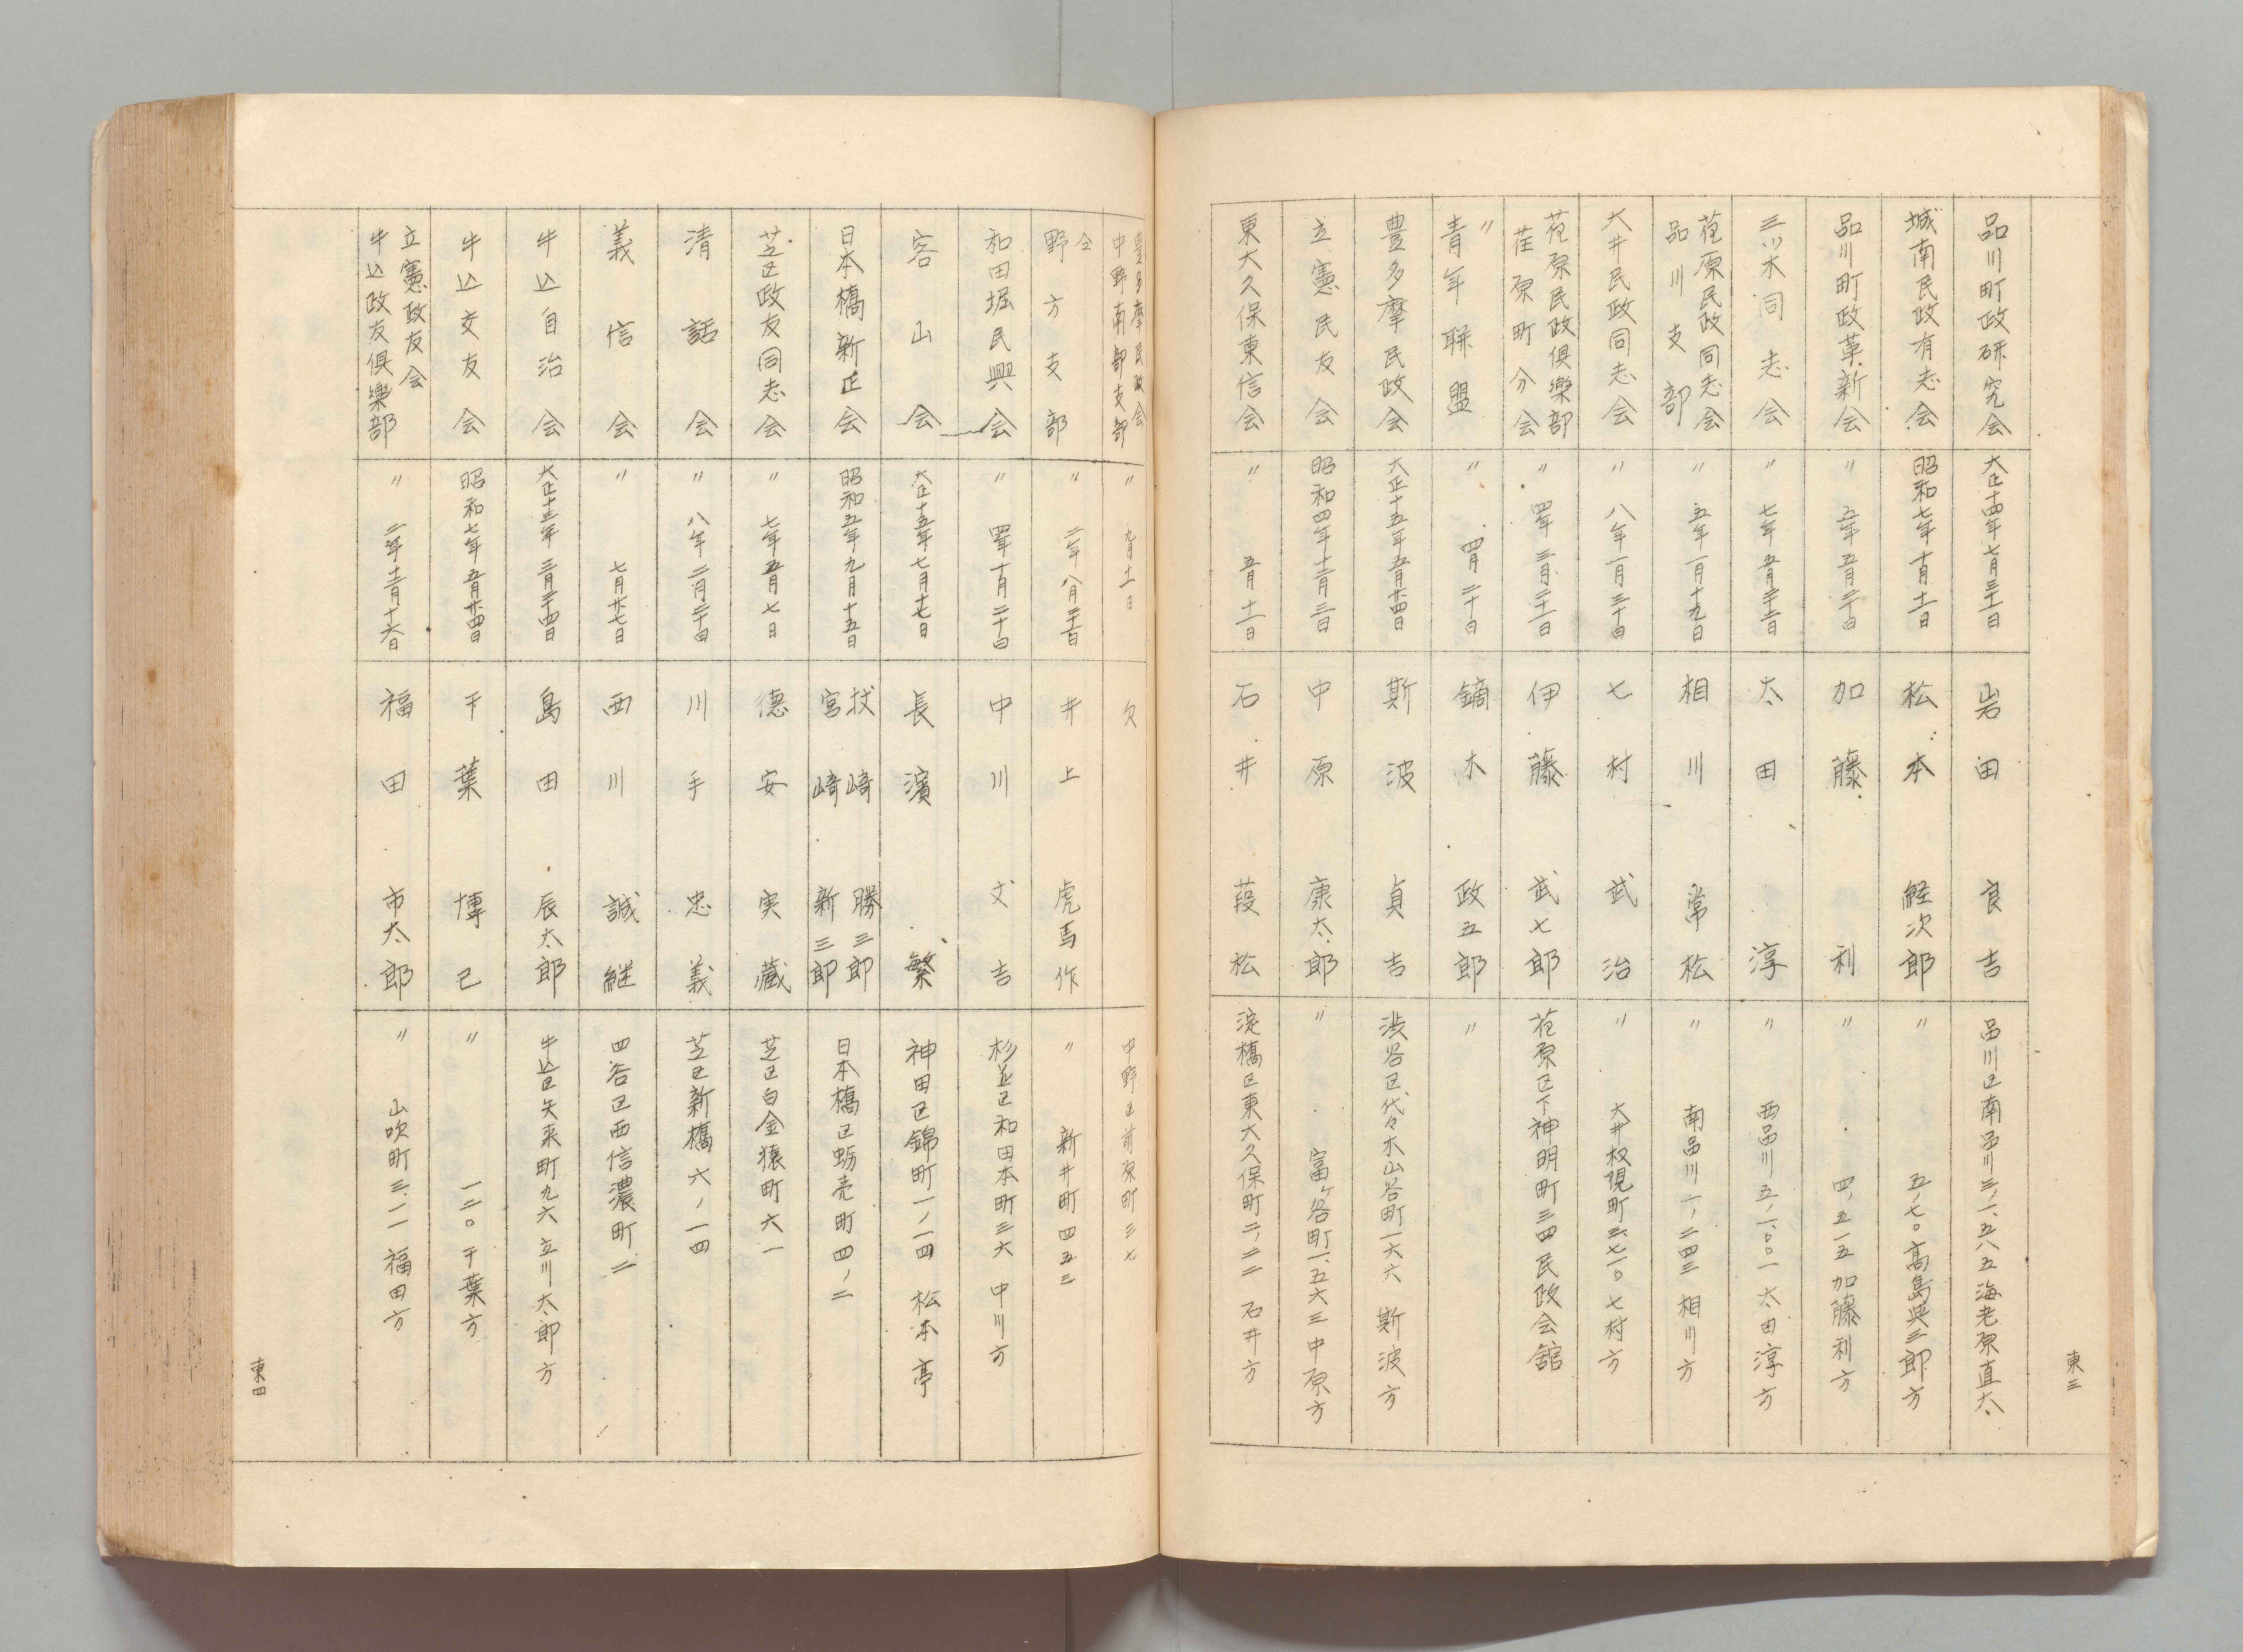 品川町政研究会 大正十四年七月三十一日 岩田良吉 品川区南品川三ノ一、五八五海老原直太
城南民政有志会 昭和七年十月十一日 松本経次郎 〃 五ノ七〇高島與三郎方
品川町政革新会 〃 五年五月二十日 加藤利 〃 四ノ五一五加藤利方
三業同志会 〃 七年五月二十二日 太田淳 〃 西品川五ノ一、〇〇一太田淳方
荏原民政同志会
品川支部 〃 五年一月十九日 相川常松 〃 南品川一ノ二四三 相川方
大井民政同志会 〃 八年一月三十日 七村武治 〃 大井权現町三、七一〇七村方
荏原民政倶楽部
荏原町分会 〃 四年三月二十一日 伊藤武七郎 荏原区下神明町三四民政会舘
〃
青年聯盟 〃 四月二十日 鏑木政五郎 〃
豊多摩民政会 大正十五年五月廿四日 斯波貞吉 渋谷区代々木山谷町一六六 斯波方
立憲民友会 昭和四年十二月三日 中原康太郎 〃 富ヶ谷町一、五六三中原方
東大久保東信会 〃 五月十一日 石井葭松 淀橋区東大久保町二ノ二二 石井方
東三
豊多摩民政会
中野南部支部 〃 九月十一日 欠 中野区前原町三七
仝
野方支部 〃 二年八月二十日 井上虎馬作 〃 新井町四五三
和田堀民興会 〃 四年十月二十日 中川丈吉 杉並区和田本町三六 中川方
容山会 大正十五年七月十七日 長濱繁 神田区錦町一ノ一四 松本亭
日本橋新正会 昭和五年九月十五日 杖崎勝三郎
宮崎新三郎 日本橋区蛎壳町四ノ二
芝区政友同志会 〃 七年五月七日 徳安実蔵 芝区白金猿町六一
清話会 〃 八年二月二十日 川手忠義 芝区新橋六ノ一四
義信会 〃 七月廿七日 西川誠継 四谷区西信濃町二
牛込自治会 大正十三年三月二十四日 島田辰太郎 牛込区矢来町九六 立川太郎方
牛込交友会 昭和七年五月廿四日 千葉博己 〃 一二〇千葉方
立憲政友会
牛込政友倶楽部 〃 二年十二月十六日 福田市太郎 〃 山吹町三一一福田方
東四